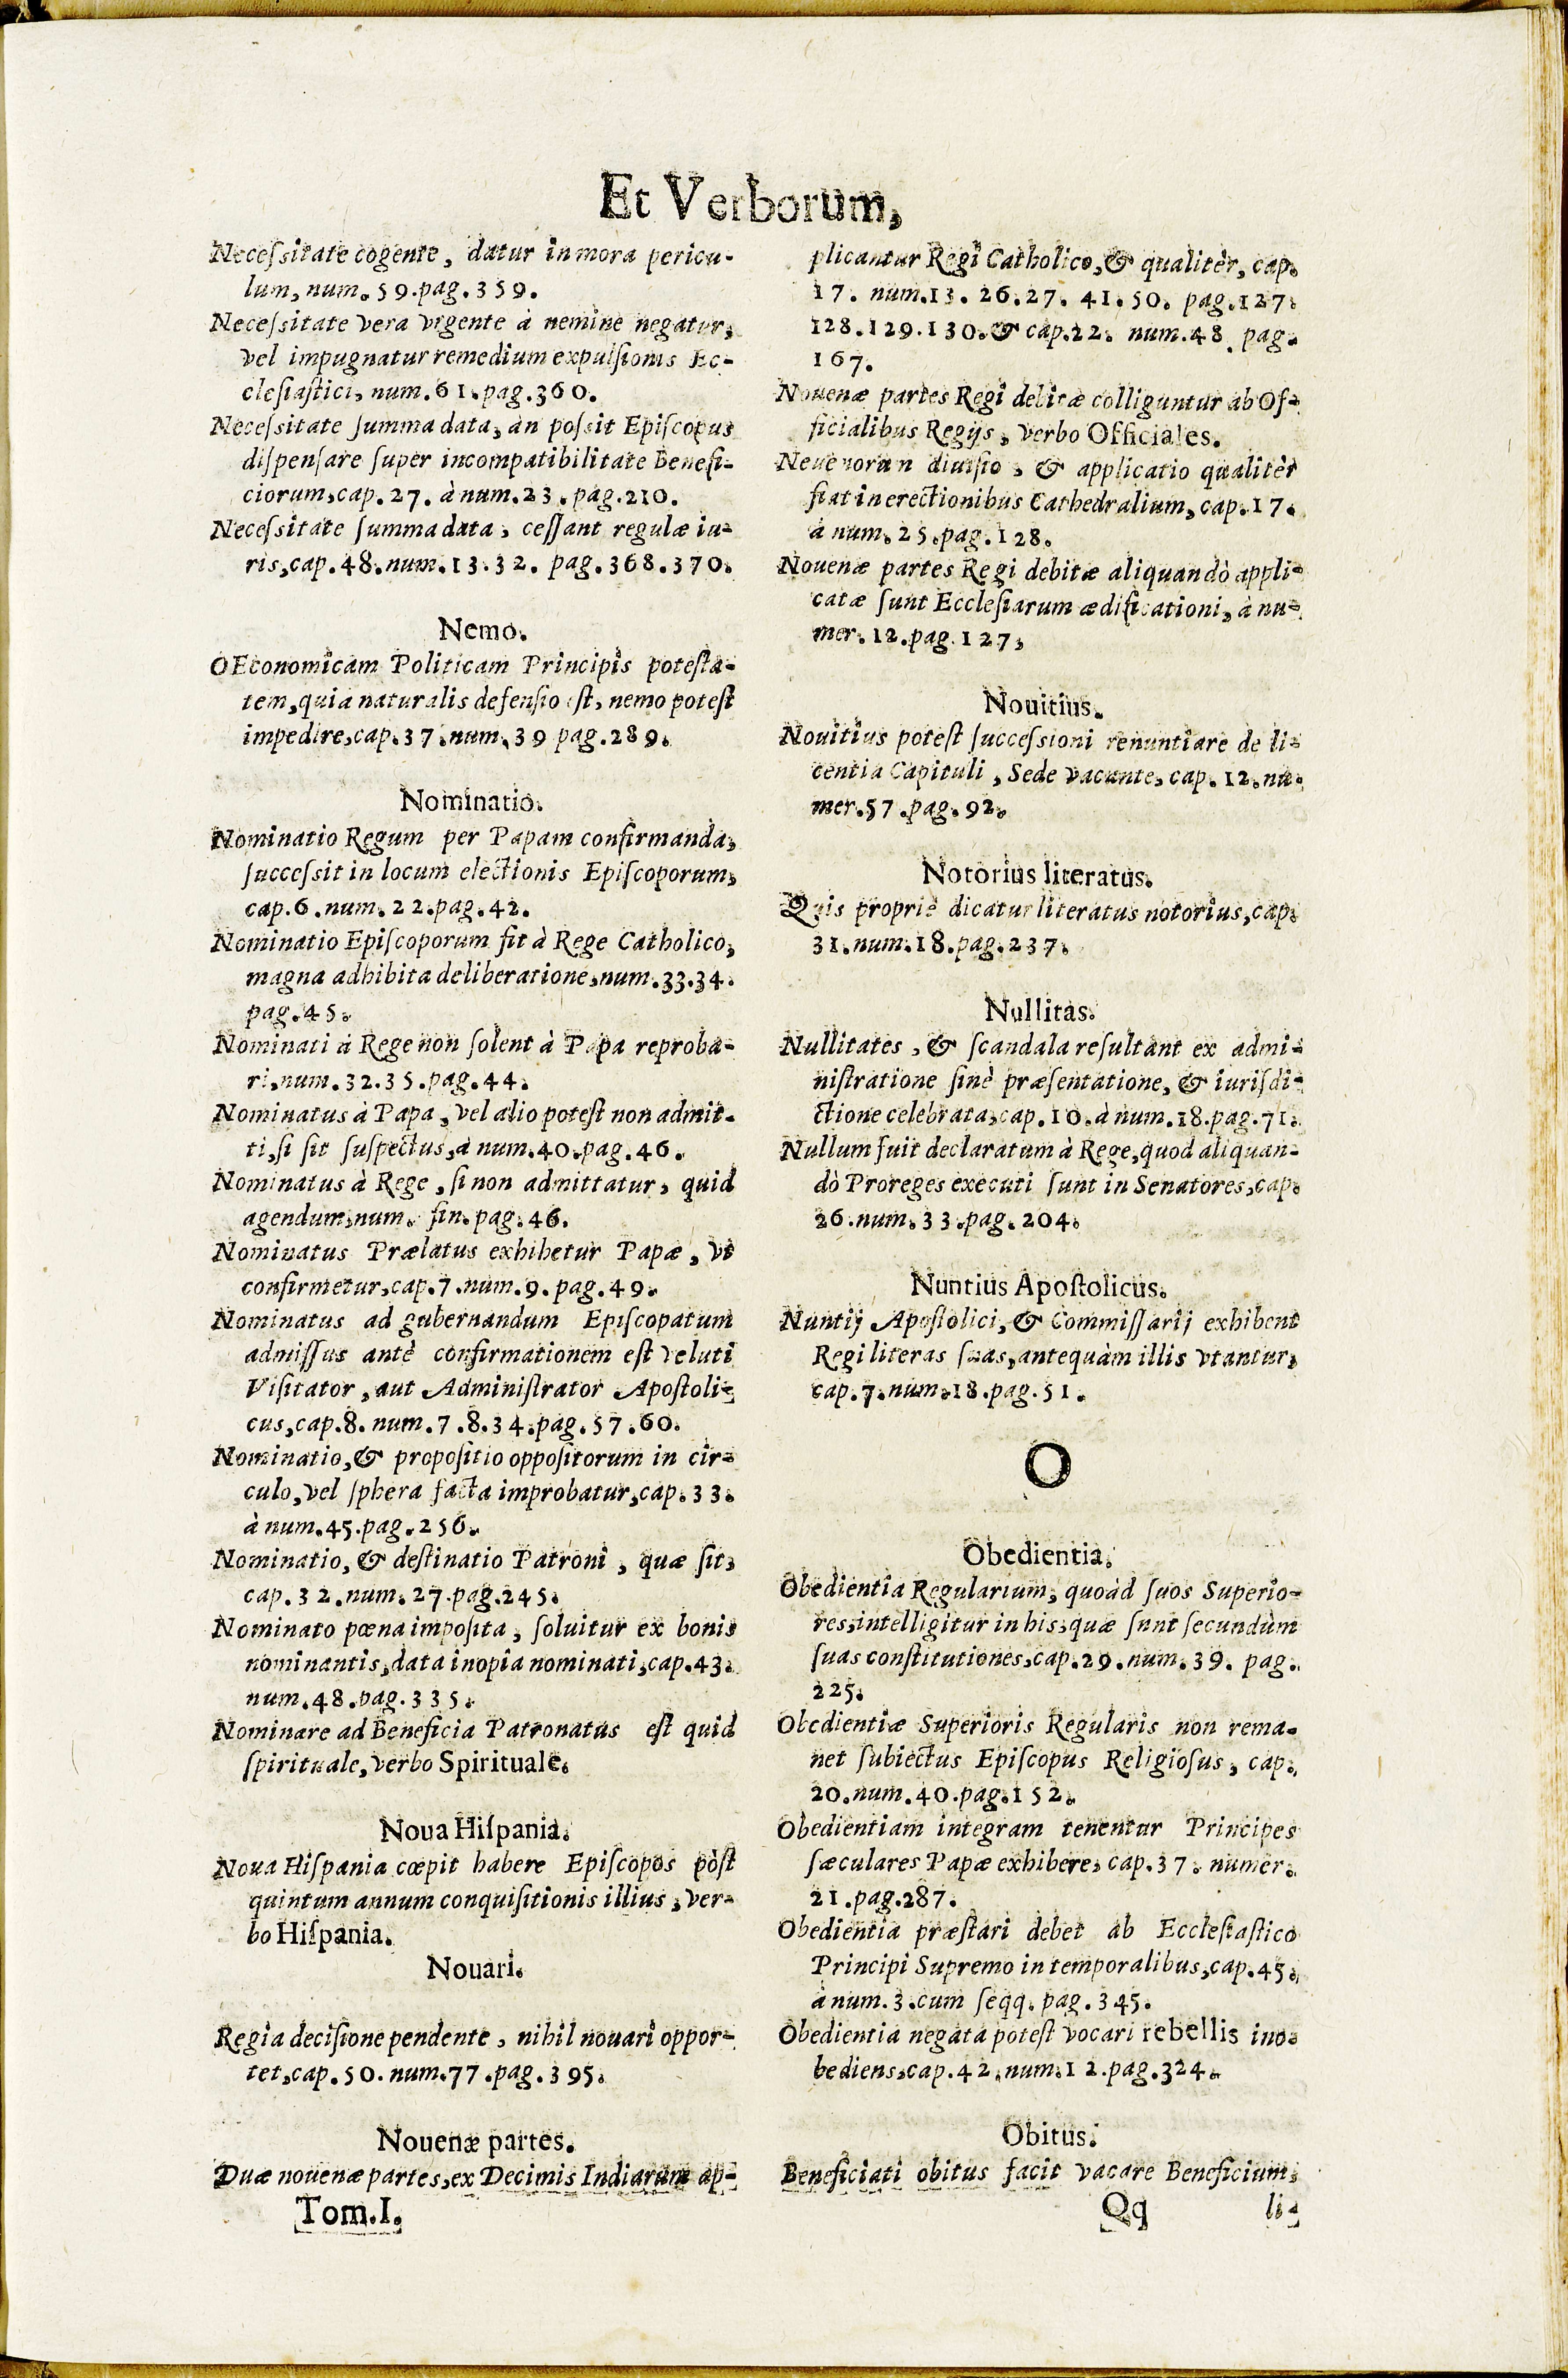 Et Verborum,
Necessitate cogente, datur in mora pericu-
lum, num. 59. pag. 359.
Necessitate vera vrgente à nemine negatur,
vel impugnatur remedium expulsionis Ec-
clesiastici, num. 61. pag. 360.
Necessitate summa data, an possit Episcopus
dispensare super incompatibilitate Benefi-
ciorum, cap. 27. à num. 23. pag. 210.
Necessitate summa data, cessant regulæ iu-
ris, cap. 48. num. 13. 32. pag. 368. 370.
Nemo.
OEconomicam Politicam Principis potesta-
tem, quia naturalis defensio est, nemo potest
impedire, cap. 37. num. 39 pag. 289.
Nominatio.
Nominatio Regum per Papam confirmanda,
successit in locum electionis Episcoporum,
cap. 6. num. 22. pag. 42.
Nominatio Episcoporum fit à Rege Catholico,
magna adhibita deliberatione, num. 33. 34.
pag. 45.
Nominati à Rege non solent à Papa reproba-
ri, num. 32. 35. pag. 44.
Nominatus à Papa, vel alio potest non admit-
ti, si sit suspectus, à num. 40. pag. 46.
Nominatus à Rege, si non admittatur, quid
agendum, num. fin. pag. 46.
Nominatus Prælatus exhibetur Papæ, vt
confirmetur, cap. 7. num. 9. pag. 49.
Nominatus ad gubernandum Episcopatum
admissus antè confirmationem est veluti
Visitator, aut Administrator Apostoli-
cus, cap. 8. num. 7. 8. 34. pag. 57. 60.
Nominatio, & propositio oppositorum in cir-
culo, vel sphera facta improbatur, cap. 33.
à num. 45. pag. 256.
Nominatio, & destinatio Patroni, quæ sit,
cap. 32. num. 27. pag. 245.
Nominato pœna imposita, soluitur ex bonis
nominantis, data inopia nominati, cap. 43.
num. 48. pag. 335.
Nominare ad Beneficia Patronatus est quid
spirituale, verbo Spirituale.
Noua Hispania.
Noua Hispania cœpit habere Episcopos pòst
quintum annum conquisitionis illius, ver-
bo Hispania.
Nouari.
Regia decisione pendente, nihil nouari oppor-
tet, cap. 50. num. 77. pag. 395.
Nouenæ partes.
Duæ nouenæ partes, ex Decimis Indiarum ap-
Tom. I.
plicantur Regi Catholico, & qualitèr, cap.
17. num. 13. 26. 27. 41. 50. pag. 127.
128. 129. 130. & cap. 22. num. 48 pag.
167.
Nouenæ partes Regi debitæ colliguntur ab Of-
ficialibus Regijs, verbo Officiales.
Nouenorum diuisio, & applicatio qualitèr
fiat in erectionibus Cathedralium, cap. 17.
à num. 25. pag. 128.
Nouenæ partes Regi debitæ aliquandò appli-
catæ sunt Ecclesiarum ædificationi, à nu-
mer. 12. pag. 127,
Nouitius.
Nouitius potest successioni renuntiare de li-
centia Capituli, Sede vacante, cap. 12. nu-
mer. 57. pag. 92.
Notorius literatus.
Quis propriè dicatur literatus notorius, cap.
31. num. 18. pag. 237.
Nullitas.
Nullitates, & scandala resultant ex admi-
nistratione sinè præsentatione, & iurisdi-
ctione celebrata, cap. 10. à num. 18. pag. 71.
Nullum fuit declaratum à Rege, quod aliquan-
dò Proreges executi sunt in Senatores, cap.
26. num. 33. pag. 204.
Nuntius Apostolicus.
Nuntij Apostolici, & Commissarij exhibent
Regi literas suas, antequàm illis vtantur,
cap. 7. num. 18. pag. 51.
O
Obedientia.
Obedientia Regularium, quoàd suos Superio-
res, intelligitur in his, quæ sunt secundùm
suas constitutiones, cap. 29. num. 39. pag.
225.
Obedientiæ Superioris Regularis non rema-
net subiectus Episcopus Religiosus, cap.
20. num. 40. pag. 152.
Obedientiam integram tenentur Principes
sæculares Papæ exhibere, cap. 37. numer.
21. pag. 287.
Obedientia præstari debet ab Ecclesiastico
Principi Supremo in temporalibus, cap. 45.
à num. 3. cum seqq. pag. 345.
Obedientia negata potest vocari rebellis ino-
bediens, cap. 42. num. 12. pag. 324.
Obitus.
Beneficiati obitus facit vacare Beneficium,
Qq li-